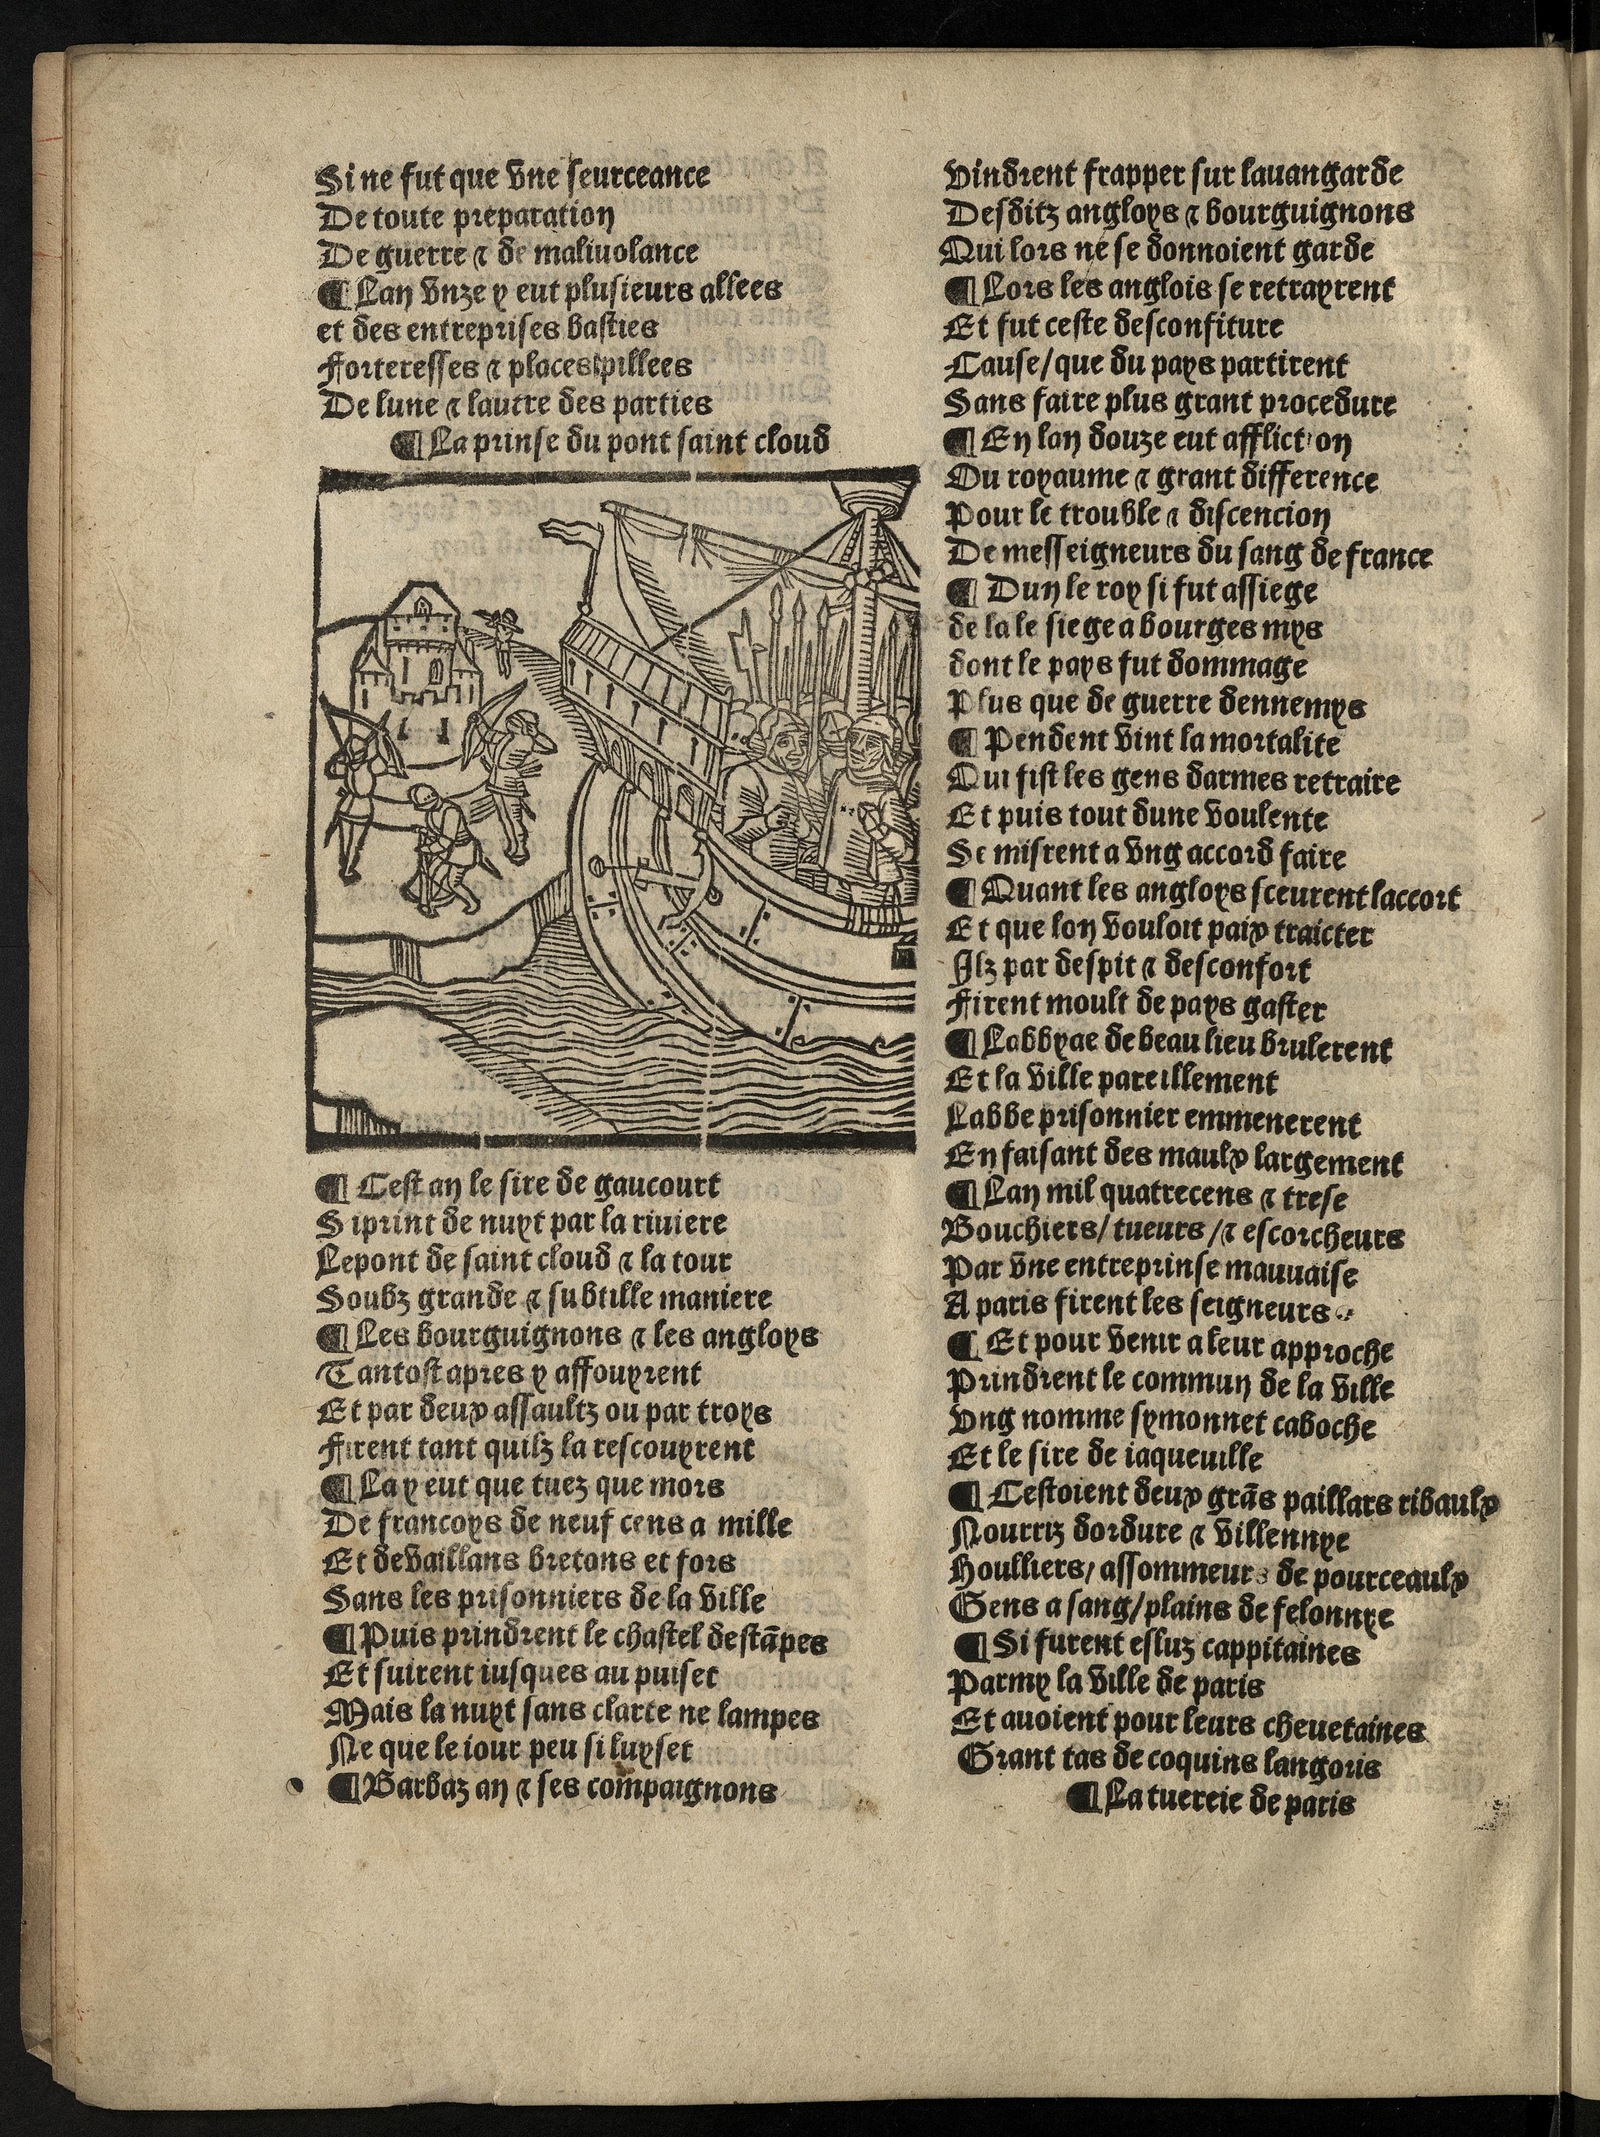 Si ne fut que vne seurceance
De toute preparation
De guerre ⁊ de maliuolance
¶ Lan vnze y eut plusieurs allees
et des entreprises basties
Forteresses ⁊ places pillees
De lune ⁊ lautre des parties
¶ La prinse du pont saint cloud
¶ Cest an le sire de gaucourt
Si print de nuyt par la riuiere
Lepont de saint cloud ⁊ la tour
Soubz grande ⁊ subtille maniere
¶ Les bourguignons ⁊ les angloys
Tantost apres y affouyrent
Et par deux assaultz ou par troys
Firent tant quilz la rescouyrent
¶ La y eut que tuez que mors
De francoys de neuf cens a mille
Et de vaillans bretons et fors
Sans les prisonniers de la ville
¶ Puis prindrent le chastel destāpes
Et suirent iusques au puiset
Mais la nuyt sans clarte ne lampes
Ne que le iour peu si luyset
¶ Barbazan ⁊ ses compaignons
Vindrent frapper sur lauangarde
Desditz angloys ⁊ bourguignons
Qui lors ne se donnoient garde
¶ Lors les anglois se retrayrent
Et fut ceste desconfiture
Cause/que du pays partirent
Sans faire plus grant procedure
¶ En lan douze eut affliction
Ou royaume ⁊ grant difference
Pour le trouble ⁊ discencion
De messeigneurs du sang de france
¶ Dun le roy si fut assiege
de la le siege a bourges mys
dont le pays fut dommage
Plus que de guerre dennemys
¶ Pendent vint la mortalite
Qui fist les gens darmes retraire
Et puis tout dune voulente
Se misrent a vng accord faire
¶ Quant les angloys sceurent laccort
Et que lon vouloit paix traicter
Ilz par despit ⁊ desconfort
Firent moult de pays gaster
¶ Labbyae de beau lieu brulerent
Et la ville pareillement
Labbe prisonnier emmenerent
En faisant des maulx largement
¶ Lan mil quatrecens ⁊ trese
Bouchiers/ tueurs /⁊ escorcheurs
Par vne entreprinse mauuaise
A paris firent les seigneurs
¶ Et pour venir a leur approche
Prindrent le commun de la ville
Vng nomme symonnet caboche
Et le sire de iaqueuille
¶ Cestoient deux grās paillars ribaulx
Nourriz dordure ⁊ villennye
Houlliers/ assommeurs de pourceaulx
Gens a sang/plains de felonnye
¶ Si furent esluz cappitaines
Parmy la ville de paris
Et auoient pour leurs cheuetaines
Grant tas de coquins langoris
¶ La tuereie de paris